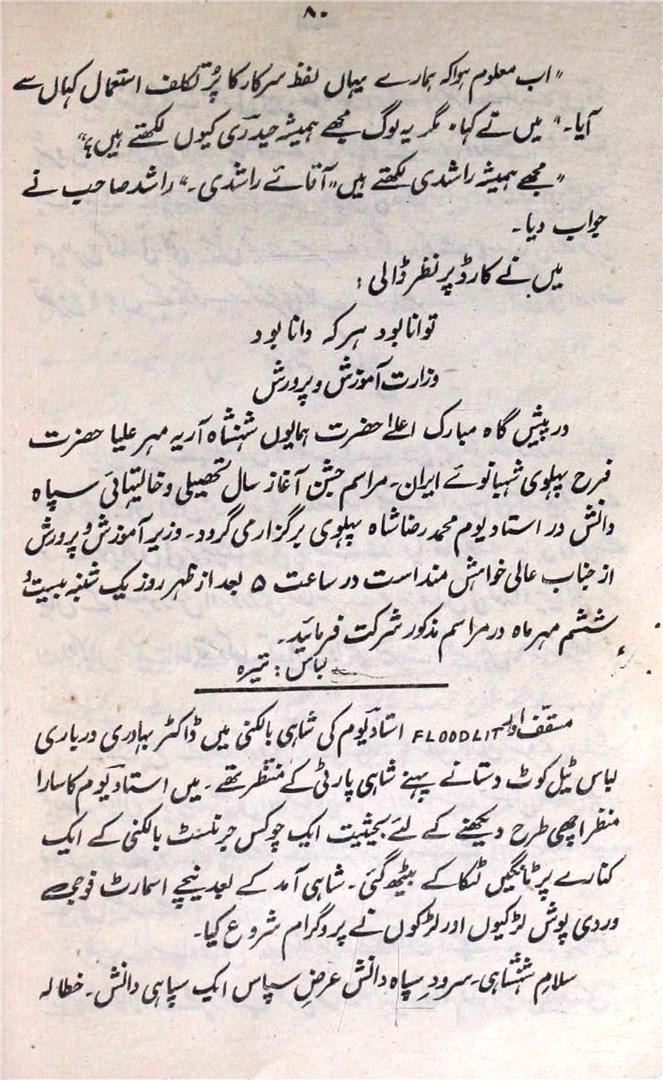 ۸۰
"اب معلوم ہوا کہ ہمارے یہاں لفظ سرکار کا پُر تکلف استعمال کہاں سے
آیا۔" میں نے کہا۔ مگر یہ لوگ مجھے ہمیشہ حیدری کیوں لکھتے ہیں؟"
"مجھے ہمیشہ راشدی لکھتے ہیں" آقائے راشدی۔" راشد صاحب نے
جواب دیا۔
میں نے کارڈ پر نظر ڈالی:
توانا بود ہر کہ دانا بود
وزارت آموزش و پرورش
در پیش گاہ مبارک اعلےٰ حضرت ہمایوں شہنشاہ آریہ مہر علیا حضرت
فرح پہلوی شہبانوئے ایران۔ مراسم جشن آغاز سال تحصیلی و خالیتہائی سپاہ
دانش در استادیوم محمد رضا شاہ پہلوی برگزار می گردد۔ وزیر آموزش و پرورش
از جناب عالی خواہش مند است در ساعت ۵ بعد از ظہر روز یک شنبہ بیست و
ششم مہر ماہ در مراسم مذکور شرکت فرمائید۔
لباس: تیرہ
مسقف اور FLOODLIT استادیوم کی شاہی بالکنی میں ڈاکٹر بہادری درباری
لباس ٹیل کوٹ دستانے پہنے شاہی پارٹی کے منتظر تھے۔ میں استادیوم کا سارا
منظر اچھی طرح دیکھنے کے لئے بحیثیت ایک چوکس جرنلسٹ بالکنی کے ایک
کنارے پر ٹانگیں لٹکا کے بیٹھ گئی۔ شاہی آمد کے بعد نیچے اسمارٹ فوجی
وردی پوش لڑکیوں اور لڑکوں نے پروگرام شروع کیا۔
سلامِ ششاہی۔ سرودِ سپاہ دانش عرضِ سپاس ایک سپاہی دانش۔ خطابہ